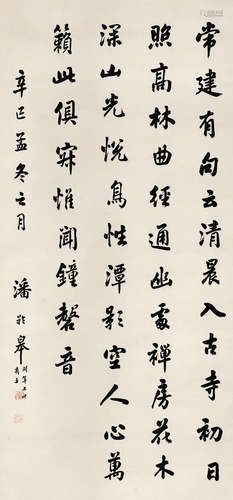 常建有句云清晨入古寺初日
照高林曲径通幽處禅房花木
深山光悦鳥性潭影空人心萬
籟此俱寂惟聞鐘磬音
辛巳孟冬之月
潘龄皋
時年